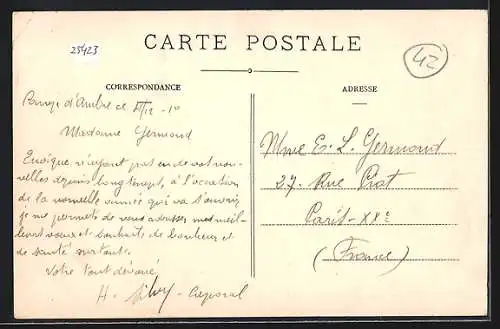 25423
CARTE POSTALE
42
CORRESPONDANCE
ADRESSE
d'Ambre ce
Madame Germond
pas eu de vos nou-
velles depuis longtemps, à l'occasion
de la nouvelle année qui va s'ouvrir
je me permets de vous adresser mes meil-
leurs voeux et souhaits de bonheur et
de santé surtout.
Votre tout dévoué
H. Caporal
Mme E. L. Germond
27. Rue Piat
Paris-XXe
(France)